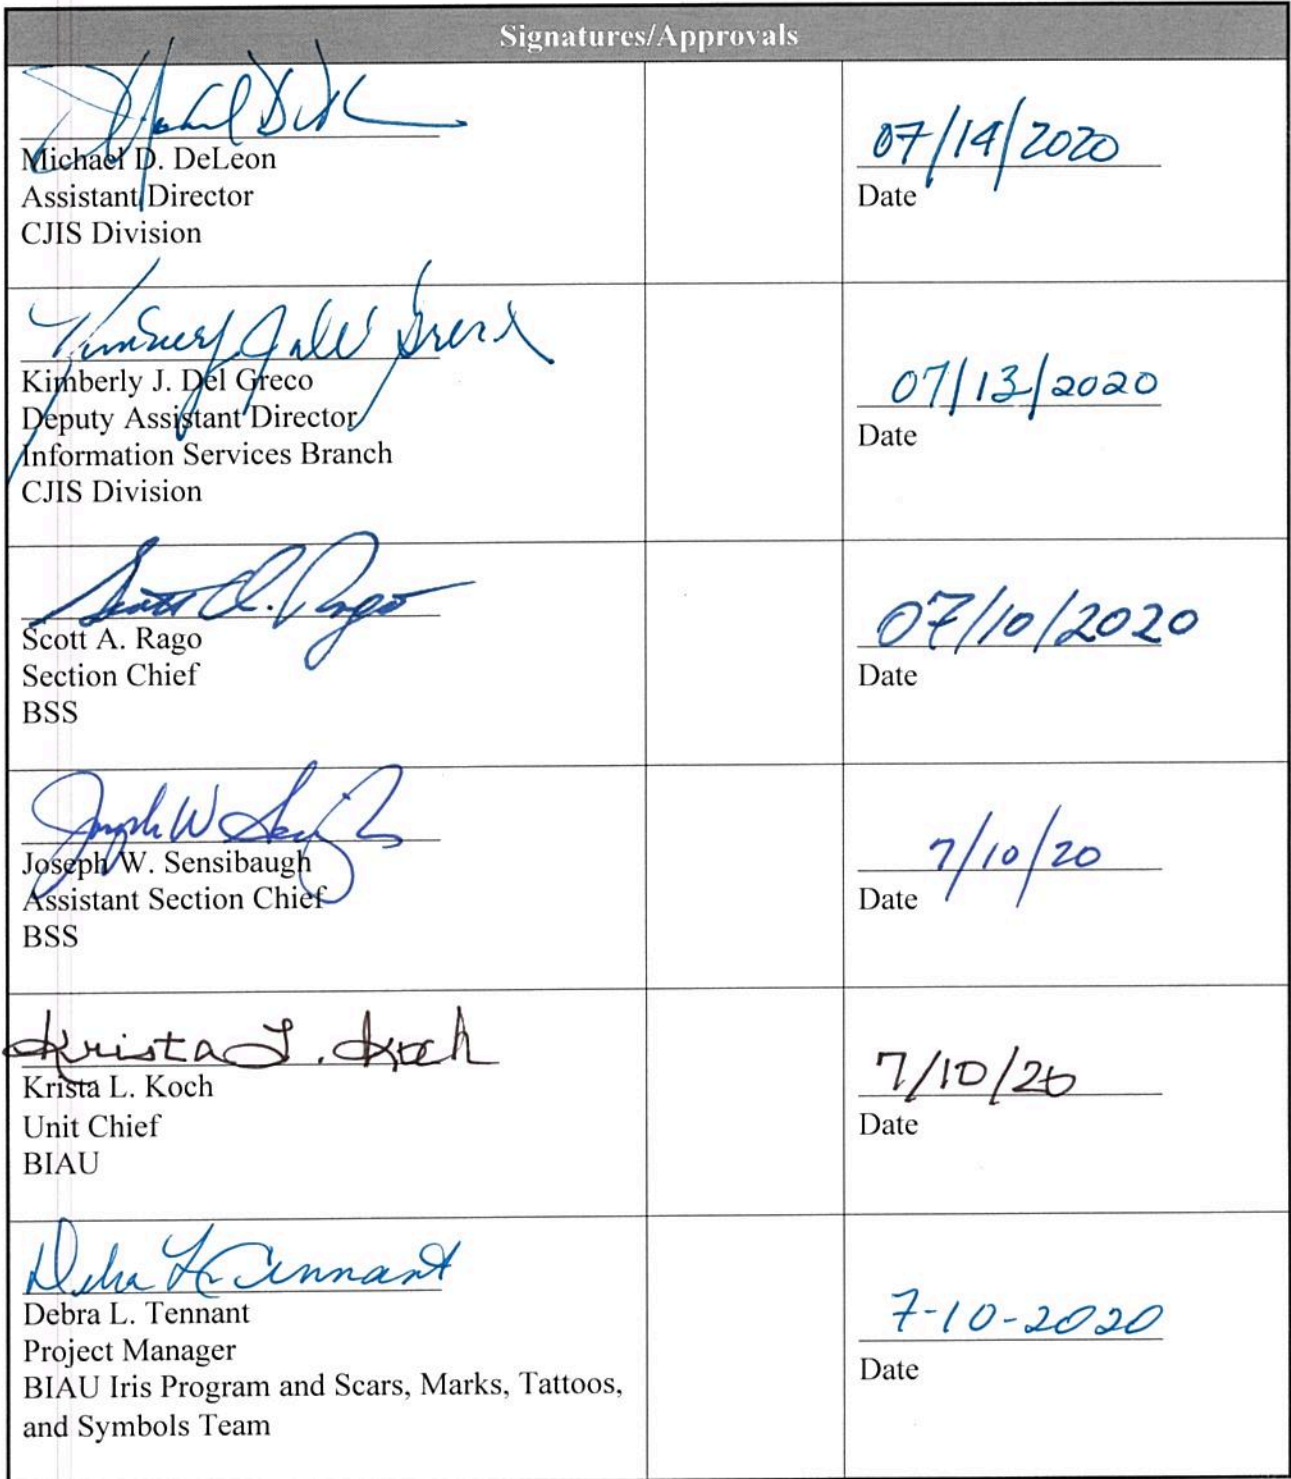 Signatures/Approvals
Michael D. DeLeon
Assistant Director
CJIS Division
07/14/2020
Date
Kimberly J. Del Greco
Deputy Assistant Director
Information Services Branch
CJIS Division
07/13/2020
Date
Scott A. Rago
Scott A. Rago
Section Chief
BSS
07/10/2020
Date
Joseph W
Joseph W. Sensibaugh
Assistant Section Chief
BSS
7/10/20
Date
Krista L. Koch
Krista L. Koch
Unit Chief
BIAU
7/10/20
Date
Debra L Tennant
Debra L. Tennant
Project Manager
BIAU Iris Program and Scars, Marks, Tattoos,
and Symbols Team
7-10-2020
Date